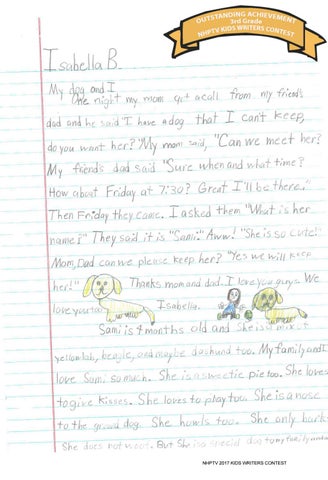 OUTSTANDING ACHIEVEMENT
3rd Grade
NHPTV KIDS WRITERS CONTEST
Isabella B.
My dog and I
One night my mom got a call from my friend's
dad and he said "I have a dog that I can't keep,
do you want her?" My mom said, "Can we meet her?
My friend's dad said "Sure when and what time?
How about Friday at 7:30? Great I'll be there."
Then Friday they came. I asked them "What is her
name?" They said it is "Sami." Aww! "She is so cute!"
Mom, Dad can we please keep her? "Yes we will keep
her!" Thanks mom and dad. I love you guys. We
love you too Isabella.
Sami is 4 months old and She is a mix of
yellow lab, beagle, and maybe dashund too. My family and I
love Sami so much. She is a sweetie pie too. She loves
to give kisses. She loves to play too. She is a nose
to the ground dog. She howls too. She only bark
She does not But She is a special dog to my family and
NHPTV 2017 KIDS WRITERS CONTEST